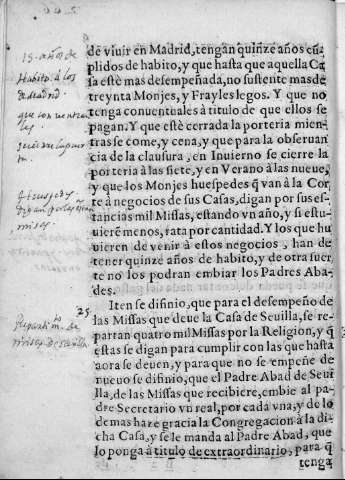 de viuir en Madrid, tengan quinze años cũ
plidos de habito, y que hasta que aquella Ca
sa estè mas desempeñada, no sustente mas de
treynta Monjes, y Frayles legos. Y que no
tenga conuentuales à titulo de que ellos se
pagan. Y que estè cerrada la porteria mien-
tras se come, y cena, y que para la obseruan
cia de la clausura, en Inuierno se cierre la
porteria à las siete, y en Verano à las nueue,
y que los Monjes huespedes q̃ van à la Cor
te à negocios de sus Casas, digan por sus es-
tancias mil Missas, estando vn año, y si estu-
uierẽ menos, rata por cantidad. Y los que hu
uieren de venir à estos negocios, han de
tener quinze años de habito, y de otra suer
te no los podran embiar los Padres Aba-
des.
Iten se difinio, que para el desempeño de
las Missas que deue la Casa de Seuilla, se re-
partan quatro mil Missas por la Religion, y q̃
estas se digan para cumplir con las que hasta
aora se deuen, y para que no se empeñe de
nueuo se difinio, que el Padre Abad de Seui
lla, de las Missas que recibiere, embie al pa-
dre Secretario vn real, por cada vna, y de lo
demas haze gracia la Congregacion à la di-
cha Casa, y se le manda al Padre Abad, que
lo ponga à titulo de extraordinario, para q̃
tenga
15. años de
Habito à los
de Madrid.
que
Huespedes
digan
misas
25
de
misas de Seuilla